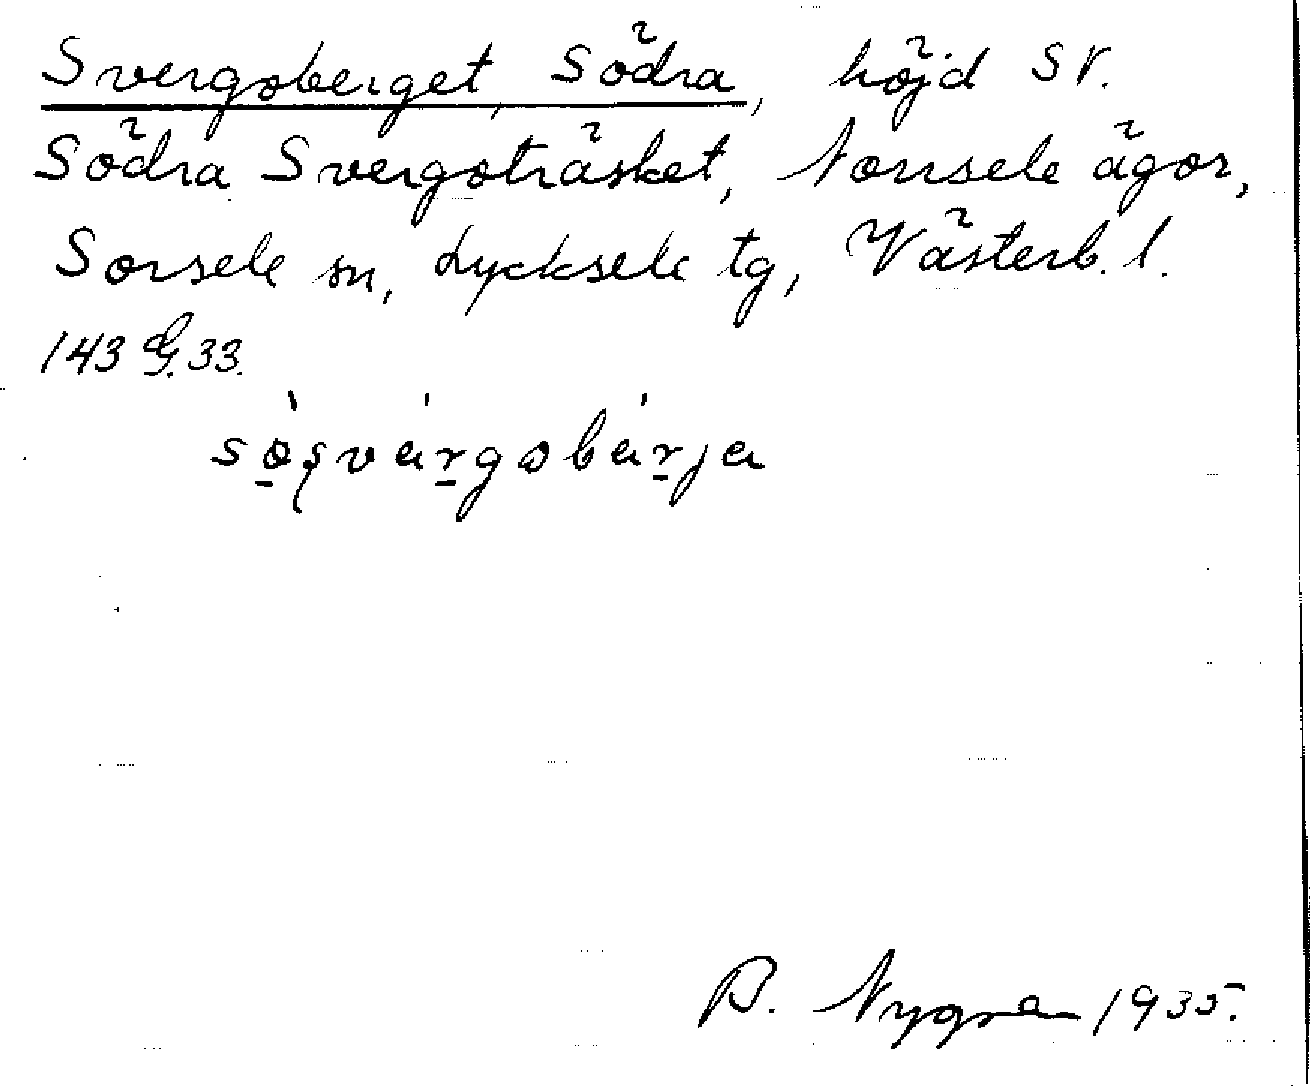 Svergoberget, Södra, höjd SV.
Södra Svergoträsket, Norrsele ägor,
Sorsele sn, Lycksele tg, Västerb. l.
143 G. 33.
B. Nygren 1935.